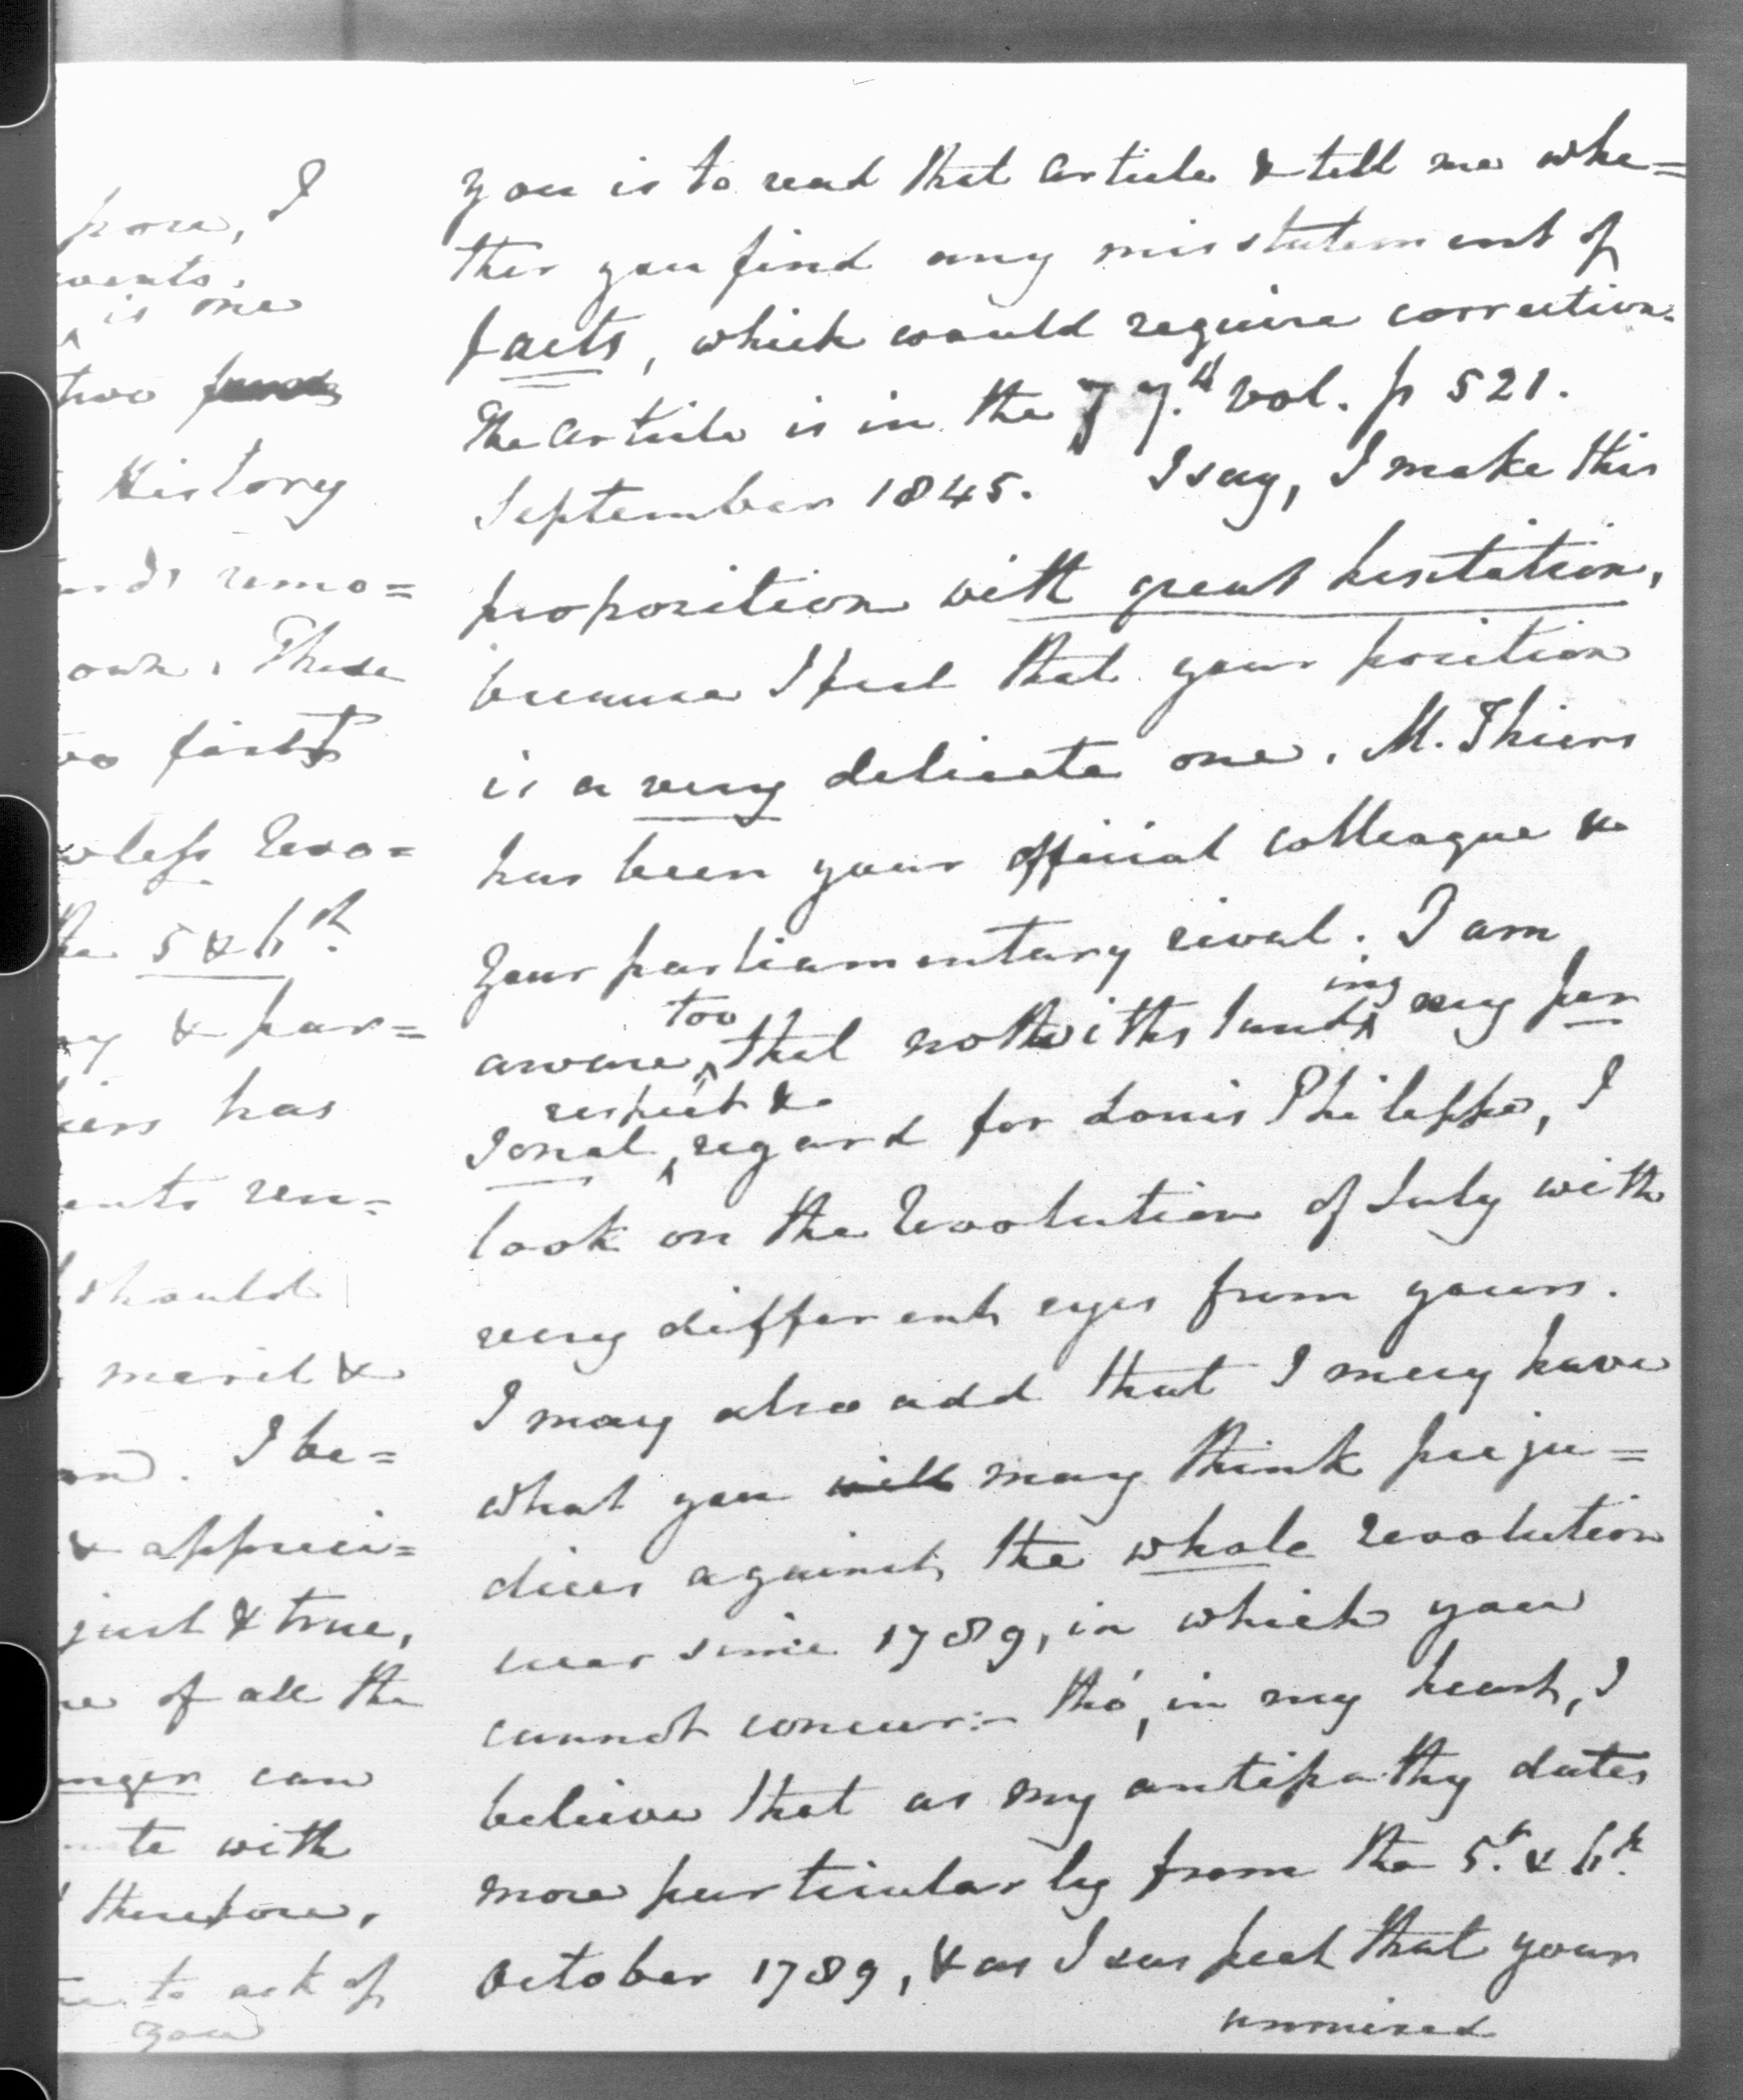 pose, I
is one
two
History
remo=
own. These
first
Revo=
the 5 & 6th.
& par=
has
ren=
should
merit &
I be=
& appreci=
just & true,
of all the
can
with
therefore,
to ask of
you
you is to read that article & tell me whe=
ther you find any misstatement of
facts, which would require correction.
The article is in the 77.th vol. p 521.
September 1845. I say, I make this
proposition with great hesitation,
because I feel that your position
is a very delicate one. M. Thiers
has been your official colleague &
your parliamentary rival. I am
aware, too that notwithstanding my per
sonal respect & regard for Louis Philippe, I
look on the Revolution of July with
very different eyes from yours.
I may also add that I may have
what you will may think preju=
dices against the whole revolution
ever since 1789, in which you
cannot concur:- tho', in my heart, I
believe that as my antipathy dates
more particularly from the 5th. & 6th.
October 1789, & as I suspect that your
unmixed